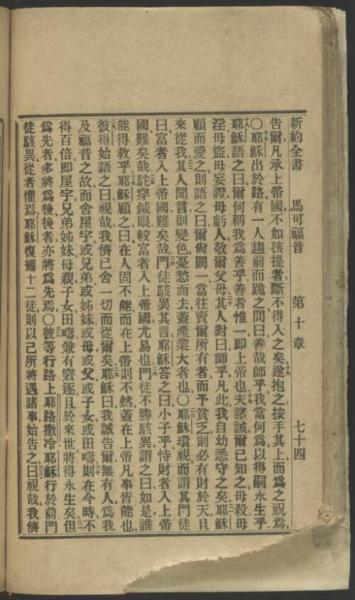 新約全書　馬可福音　第十章　七十四
告爾凡承上帝國不如孩提者斷不得入之矣遂抱之按手其上而為之祝焉
○耶穌出於路有一人趨前而跪之問曰善哉師乎我當何為以得嗣永生乎
耶穌語之曰爾何稱我為善乎善者惟一即上帝也夫諸誡爾已知之毋殺毋
淫毋盜毋妄證毋虧人敬爾父母其人對曰師乎凡此我自幼悉守之矣耶穌
顧而愛之則語之曰爾尚闕一當往賣爾所有者而予貧乏則必有財於天且
來從我其人聞言則變色憂愁而去蓋產業大者也○耶穌環視而謂其門徒
曰富者入上帝國難矣哉門徒駭異其言耶穌答之曰小子乎恃財者入上帝
國難矣哉駝穿鍼眼較富者入上帝國尤易也門徒不勝駭異謂之曰如是誰
能得救乎耶穌顧之曰在人固不能而在上帝則不然蓋在上帝凡事皆能也
彼得始語之曰視哉我儕已舍一切而從爾矣耶穌曰我誠告爾無有人為我
及福音之故而舍屋宇或兄弟或姊妹或母或父或子女或田疇則在今時不
得百倍即屋宇兄弟姊妹母親子女田疇兼有窘逐且於來世將得永生矣但
為先者多將為後後者亦將為先焉○彼等行路上耶路撒冷耶穌行於前門
徒駭異從者懼焉耶穌復攜十二徒則以己所將遇諸事始告之曰視哉我儕